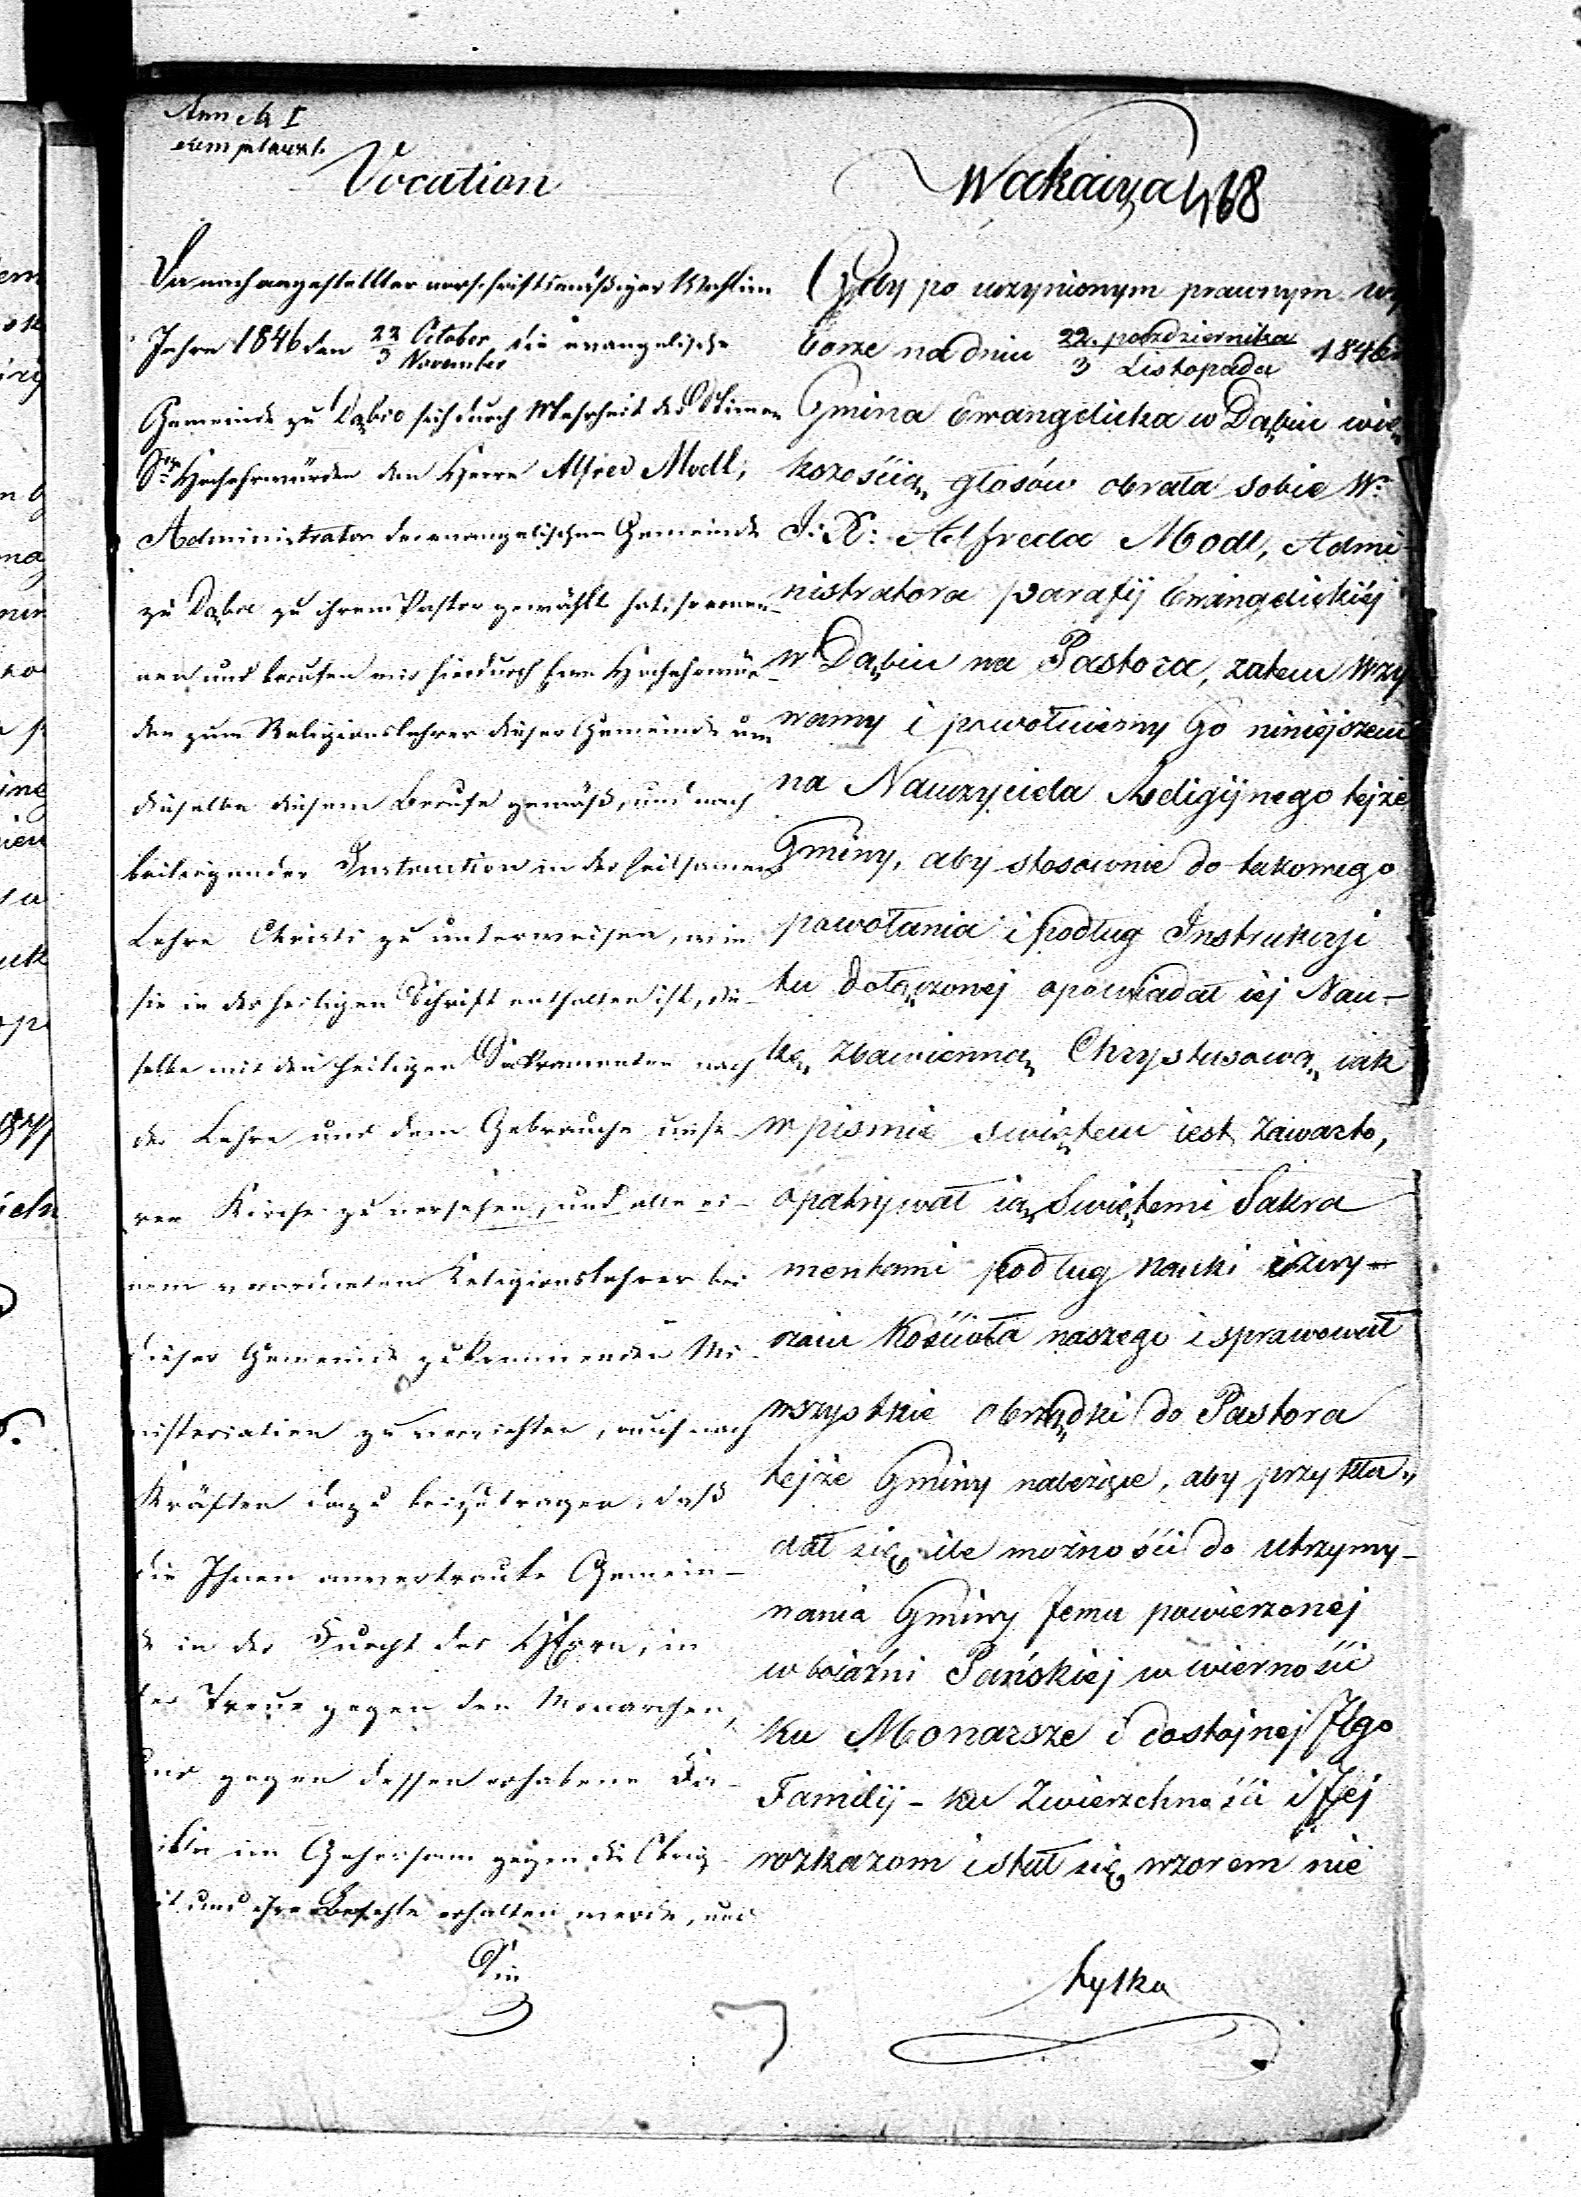 Vocation
Da nach angestellter vorschriftsmäßiger Wahl im
Jahre 1846 den 22 October / 3 November die evangelische
Gemeinde zu Dąbie sich durch Mehrheit der Stimmen
Sr Hochehrwürden den Herrn Alfred Modl,
Administrator der evangelischen Gemeinde
zu Dąbie zu ihrem Pastor gewählt hat, so ernen-
nen und berufen wir hierdurch Hochehrwür-
den zum Religionslehrer dieser Gemeinde um
dieselbe diesem Berufe gemäß, und nach
beiliegender Instruction in der heilsamen
Lehre Christi zu unterweisen, wie
sie in der heiligen Schrift enthalten ist, die-
selbe mit den heiligen Sakramenten nach
der Lehre und dem Gebrauche unse-
rer Kirche zu versehen, und alle ei-
nem verordneten Religionslehrer bei
dieser Gemeinde zukommenden Mi-
nisterialien zu verrichten, auch nach
Kräften dazu beizutragen, daß
die Ihnen anvertraute Gemein-
de in der Furcht des Herrn, in
der Treue gegen den Monarchen,
und gegen dessen erhabene Fa-
milie im Gehorsam gegen die Obrig-
und ihre Befehle erhalten werde, und
Sie
Wokacya 468
Gdy po uczynionym prawnym wy
borze na dniu 22. pazdziernika / 3 Listopada 1846
Gmina Ewangelicka w Dąbiu więk
szością głosów obrała sobie W.
J: X: Alfreda Modl, Admi-
nistratora parafij Ewangelickiéj
w Dąbiu na Pastora, zatem wzy
wamy i powołuiemy Go niniejszem
na Nauczyciela Religijnego tejże
Gminy, aby stosownie do takowego
powołania i podług Instrukcji
tu dołączonej opowiadał iej Nau-
kę zbawienną Chrystusową, iak
w piśmie świętem iest zawarto,
opatrywał ią Swiętemi Sakra
mentami podług nauki i zwy-
czaiu Kościoła naszego i sprawował
wszystkie obrządki do Pastora
tejże Gminy należące, aby przykła-
dał się ile możności do utrzymy-
wania Gminy Jemu powierzonej
w boiaźni Pańskiej w wierności
ku Monarsze i dostojnej Jego
Familij - ku Zwierzchności i Jej
rozkazom i stał się wzorem nie
tylko